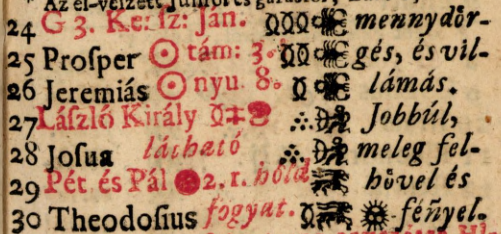 24 G 3. Ker. sz: Ján. mennydör-
25 Proſper ☉ tám: 3. gés, és vil-
26 Jeremiás ☉ nyu. 8. lámás.
27 Láſzló Király Jobbúl,
28 Joſua látható meleg fel-
29 Pét. és Pál 2. 1. hold hövel és
30 Theodoſius fogyat. fényel.